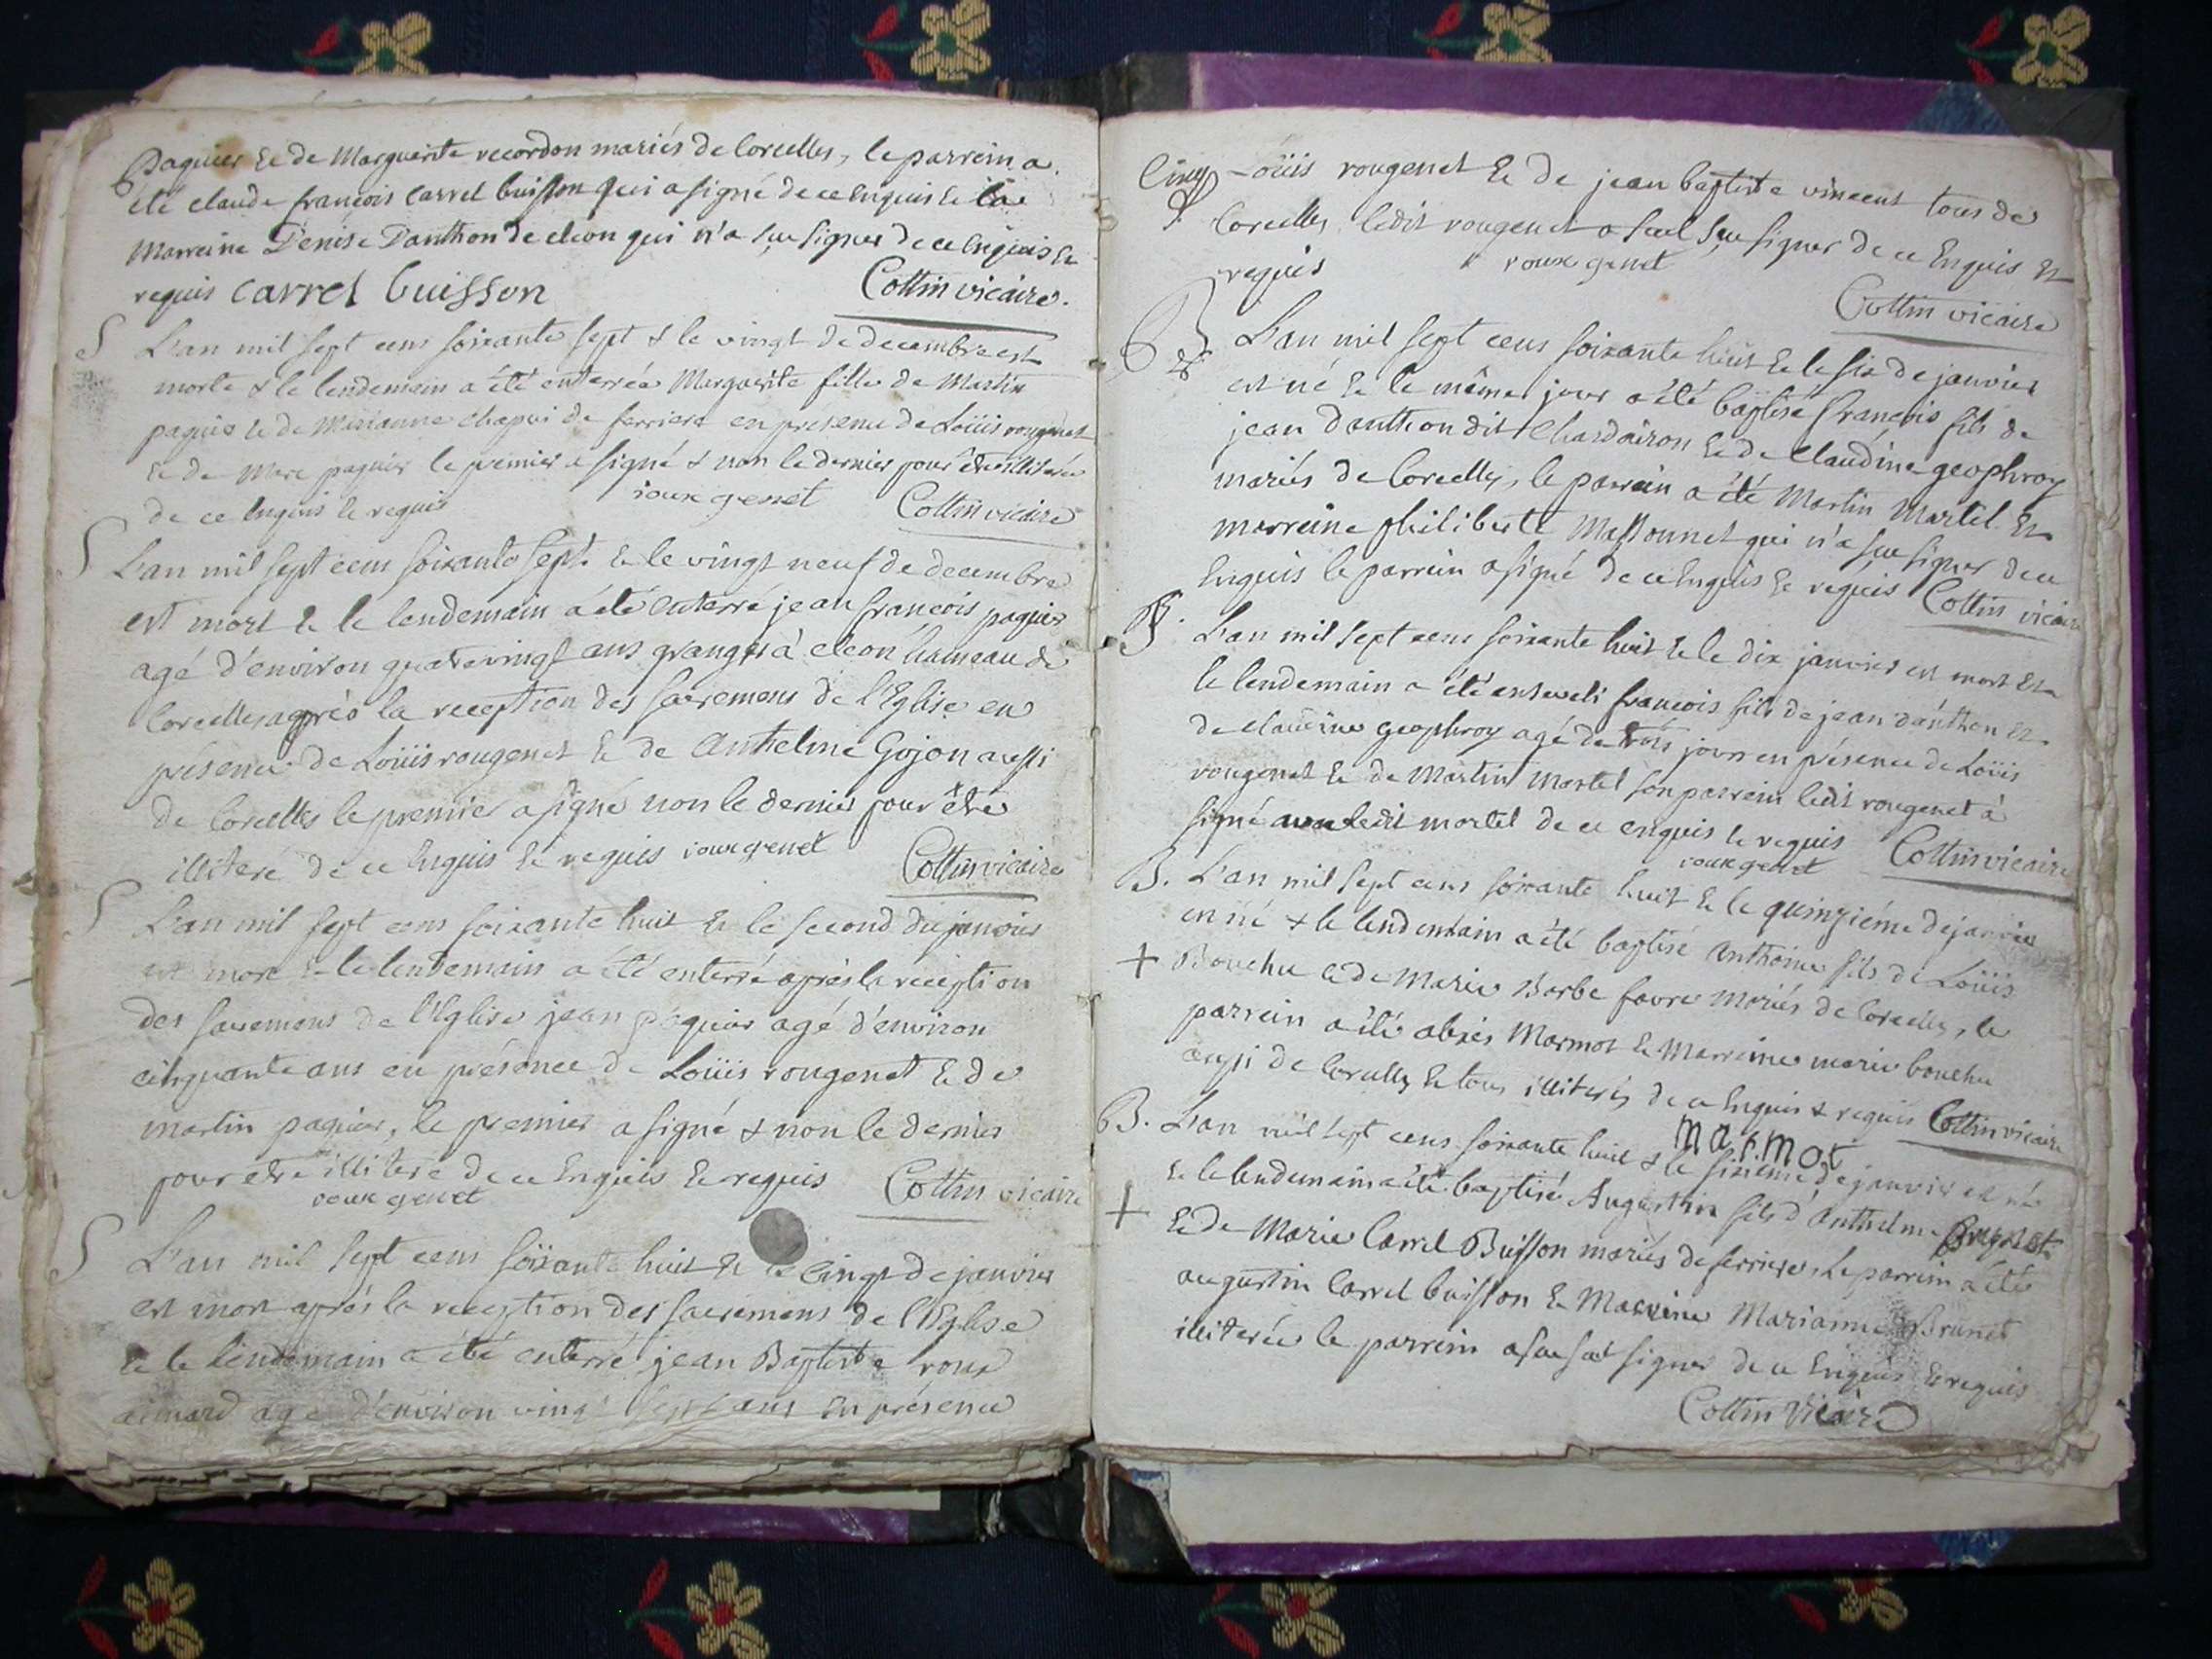 paquier & de Marguerite recordon mariés de Corcelles, le parrein a
été claude françois carrel buisson qui a signé de ce Enquis & la
Marreine Denise Danthon de cleon qui n'a sçu signer de ce Enquis &
requis carrel buisson Cottin vicaire.
S L'an mil sept cens soixante sept & le vingt de decembre est
morte & le lendemain a été enterrée Marguerite fille de Martin
paquier & de Marianne chapui de ferriere en presence de Loüis rougenet
& de Marc paquier le premier a signé & non le dernier pour être illiteré
de ce Enquis & requis rouxgenet Cottin vicaire
S L'an mil sept cens soixante sept & le vingt neuf de decembre
est mort & le lendemain a été enterré jean françois paquier
agé d'environ quatrevingt ans granger à cleon hameau de
Corcelles, après la reception des sacremens de l'Eglise en
présence de Loüis rougenet & de Anthelme Gojon aussi
de Corcelles le premier a signé non le dernier pour être
illiteré de ce Enquis & requis rouxgenet Cottin vicaire
S L'an mil sept cens soixante huit & le second de janvier
est mort & le lendemain a été enterré après la reception
des sacremens de l'Eglise jean paquier agé d'environ
cinquante ans en présence de Loüis rougenet & de
martin paquier, le premier a signé & non le dernier
pour etre illiteré de ce Enquis & requis Cottin vicaire
rouxgenet
S L'an mil sept cens soixante huit & le Cinq de janvier
est mort après la reception des sacremens de l'Eglise
& le lendemain a été enterré jean Baptiste roux
aimard agé d'environ vingt sept ans en présence
Cinq Loüis rougenet & de jean baptiste vincent tous de
Corcelles ledit rougenet a seul sçu signer de ce Enquis &
requis rouxgenet
Cottin vicaire
B & S L'an mil sept cens soixante huit & le six de janvier
est né & le même jour a été baptisé françois fils de
jean danthon dit Chardairon & de Claudine geophroy
mariés de Corcelles, le parrein a été Martin Martel &
marreine philiberte Massonnet qui n'a sçu signer de ce
Enquis le parrein a signé de ce Enquis & requis Cottin vicaire
S. L'an mil sept cens soixante huit & le dix janvier est mort &
le lendemain a été enseveli françois fils de jean danthon &
de claudine geophroy agé de trois jours en présence de Loüis
rougenet & de Martin Martel son parrein ledit rougenet à
signé avec ledit martel de ce enquis & requis
rouxgenet Cottin vicaire
B. L'an mil sept cens soixante huit & le quinziéme de janvier
est né & le lendemain a été baptisé Anthoine fils de Loüis
+ Bouchu & de Marie Barbe favre mariés de Corcelles, le
parrein a été alexis Marmot & Marreine marie bouchu
aussi de Corcelles & tous illiterés de ce Enquis & requis Cottin vicaire
marmot
B. L'an mil sept cens soixante huit & le sixieme de janvier est né
& le lendemain a été baptisé Augustin fils d'Anthelme Brunet
+ & de Marie Carrel Buisson mariés de ferriere, le parrein a été
augustin Carrel buisson & Marreine Marianne Brunet
illiterée le parrein a sçu signer de ce Enquis & requis
Cottin vicaire